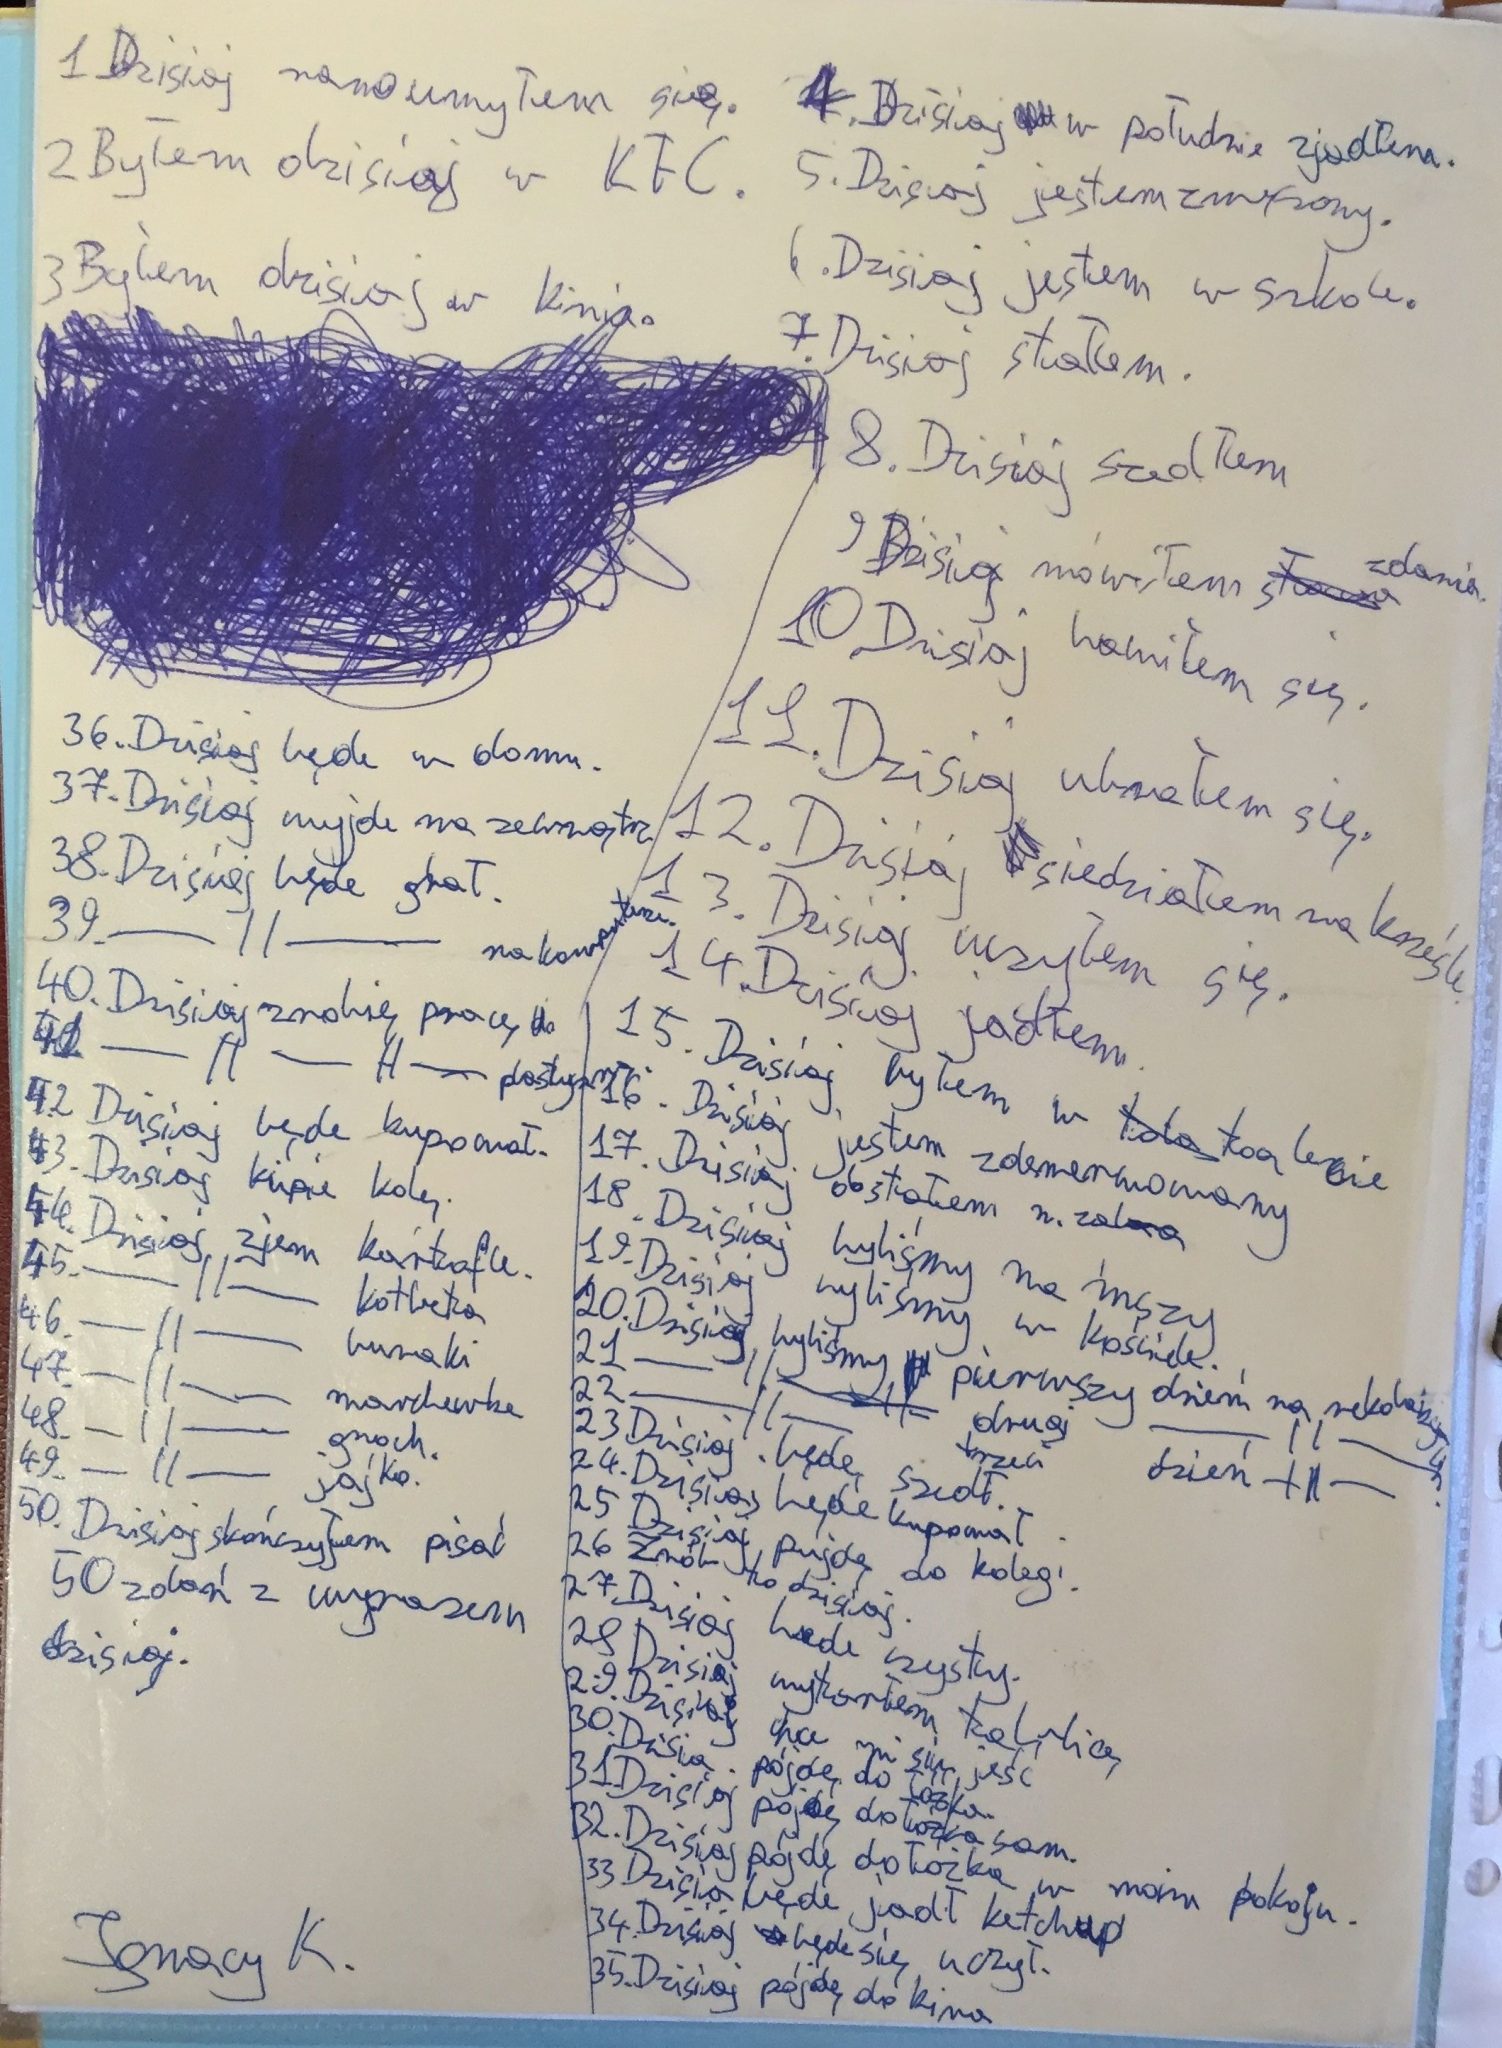 1 Dzisiaj rano umyłem się.
2 Byłem dzisiaj w KFC.
3 Byłem dzisiaj w kinie.
4. Dzisiaj w południe zjadłem.
5. Dzisiaj jestem zmęczony.
6. Dzisiaj jestem w szkole.
7. Dzisiaj stałem.
8. Dzisiaj szedłem
9 Dzisiaj mówiłem zdania.
10 Dzisiaj bawiłem się.
11. Dzisiaj ubrałem się.
12. Dzisiaj siedziałem na krześle.
13. Dzisiaj uczyłem się.
14. Dzisiaj jadłem.
15. Dzisiaj byłem w toalecie
16. Dzisiaj jestem zdenerwowany
17. Dzisiaj
18. Dzisiaj byliśmy na mszy
19. Dzisiaj byliśmy w kościele.
20. Dzisiaj byliśmy pierwszy dzień na rekolekcjach.
21 — 11 — drugi — 11 —
22 — 11 — trzeci dzień — 11 —
23 Dzisiaj będę szedł.
24. Dzisiaj będe kupował.
25 Dzisiaj pujdę do kolegi.
26 Znów to dzisiaj.
27. Dzisiaj będe czysty.
28 Dzisiaj wytarłem tablicę
29. Dzisiaj chce mi się jeść
30. Dzisia pójdę do łóżka.
31 Dzisiaj pójdę do łóżka sam.
32. Dzisiaj pójdę do łóżka w moim pokoju.
33 Dzisia będe jadł ketchup
34. Dzisiaj będe się uczył.
35. Dzisiaj pójdę do kina
36. Dzisiaj będe w domu.
37. Dzisiaj wyjde na zewnątrz
38. Dzisiaj będe grał.
39. — 11 — na komputerze.
40. Dzisiaj zrobię pracę do
41 — 11 — 11 —
42 Dzisiaj będe kupował.
43. Dzisiaj kupie kolę.
44. Dzisiaj zjem kartofle.
45. — 11 — kotleta
46. — 11 — buraki
47. — 11 — marchewke
48. — 11 — groch.
49. — 11 — jajko.
50. Dzisiaj skończyłem pisać
50 zdań z wyrazem
dzisiaj.
Ignacy K.